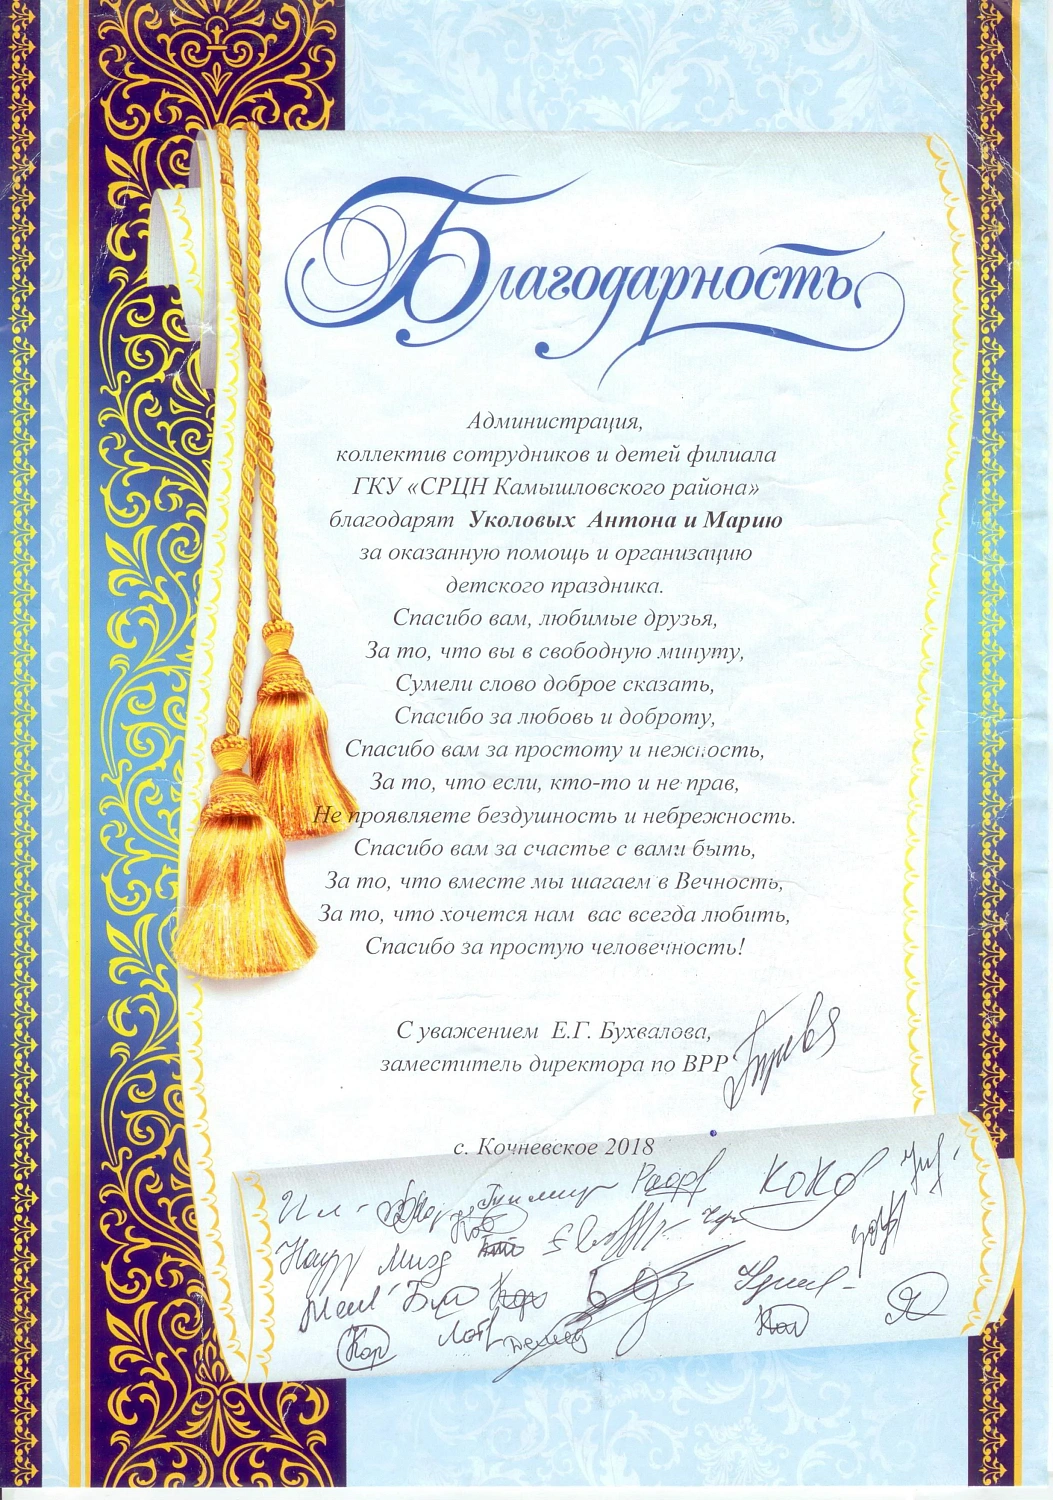 Благодарность
Администрация,
коллектив сотрудников и детей филиала
ГКУ «СРЦН Камышловского района»
благодарят Уколовых Антона и Марию
за оказанную помощь и организацию
детского праздника.
Спасибо вам, любимые друзья,
За то, что вы в свободную минуту,
Сумели слово доброе сказать,
Спасибо за любовь и доброту,
Спасибо вам за простоту и нежность,
За то, что если, кто-то и не прав,
Не проявляете бездушность и небрежность.
Спасибо вам за счастье с вами быть,
За то, что вместе мы шагаем в Вечность,
За то, что хочется нам вас всегда любить,
Спасибо за простую человечность!
С уважением Е.Г. Бухвалова,
заместитель директора по ВРР
с. Кочневское 2018